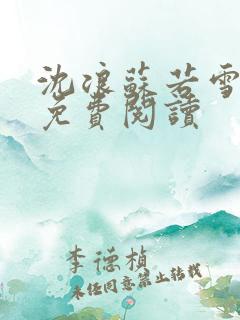 沈浪蘇若雪
免費閱讀
李德楨
未經同意禁止轉載